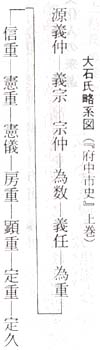 大石氏略系図（『府中市史』上巻）
源義仲―義宗―宗仲―為数―義任―為重
信重―憲重―憲儀―房重―顕重―定重―定久